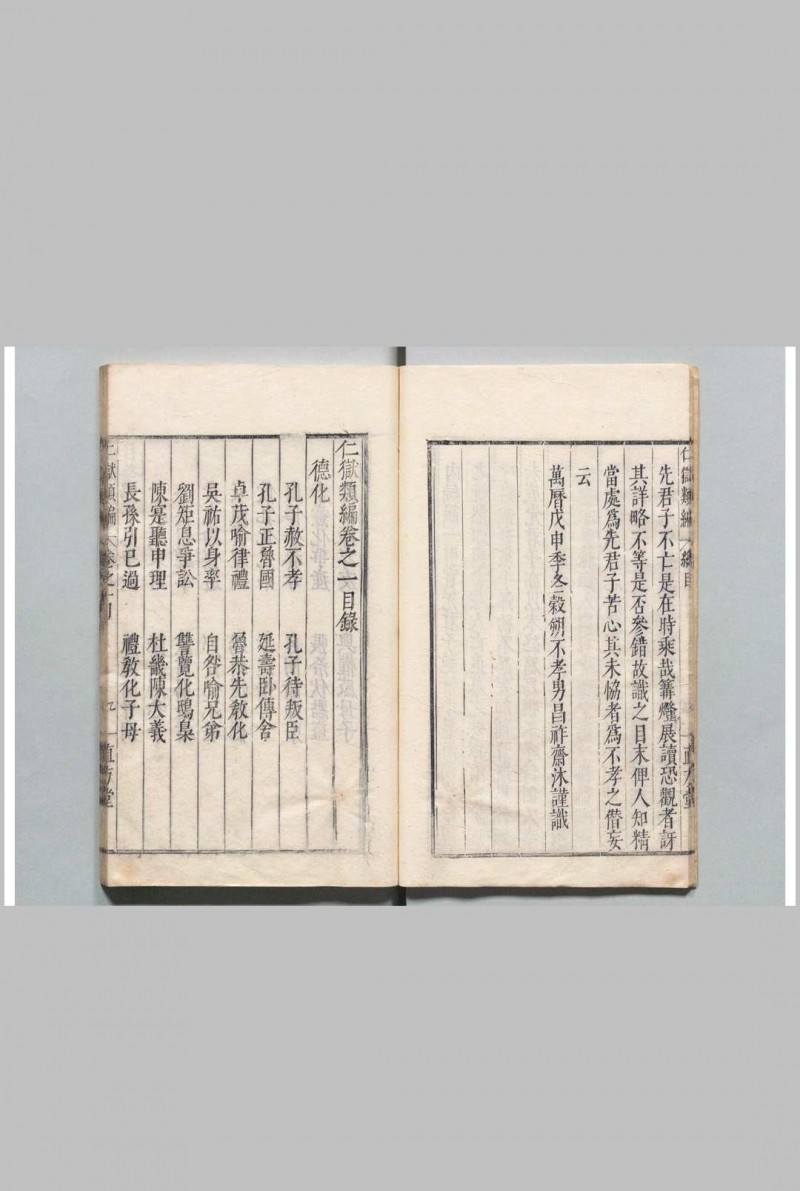 仁獄類編 總目
先君子不亡是在時乘哉篝燈展讀恐觀者訝
其詳略不等是否參錯故識之目末俾人知精
當處爲先君子苦心其未恊者爲不孝之僭妄
云
萬曆戊申季冬穀朔不孝男昌祚齋沐謹識
仁獄類編卷之一目錄
德化
孔子赦不孝 孔子待叛臣
孔子正魯國 延壽卧傳舍
卓茂喻律禮 魯恭先教化
吳祐以身率 自咎喻兄弟
劉矩息爭訟 讐覽化鴟梟
陳寔聽申理 杜畿陳大義
長孫引己過 禮教化子母
仁獄類編 卷之一目 九 直方堂